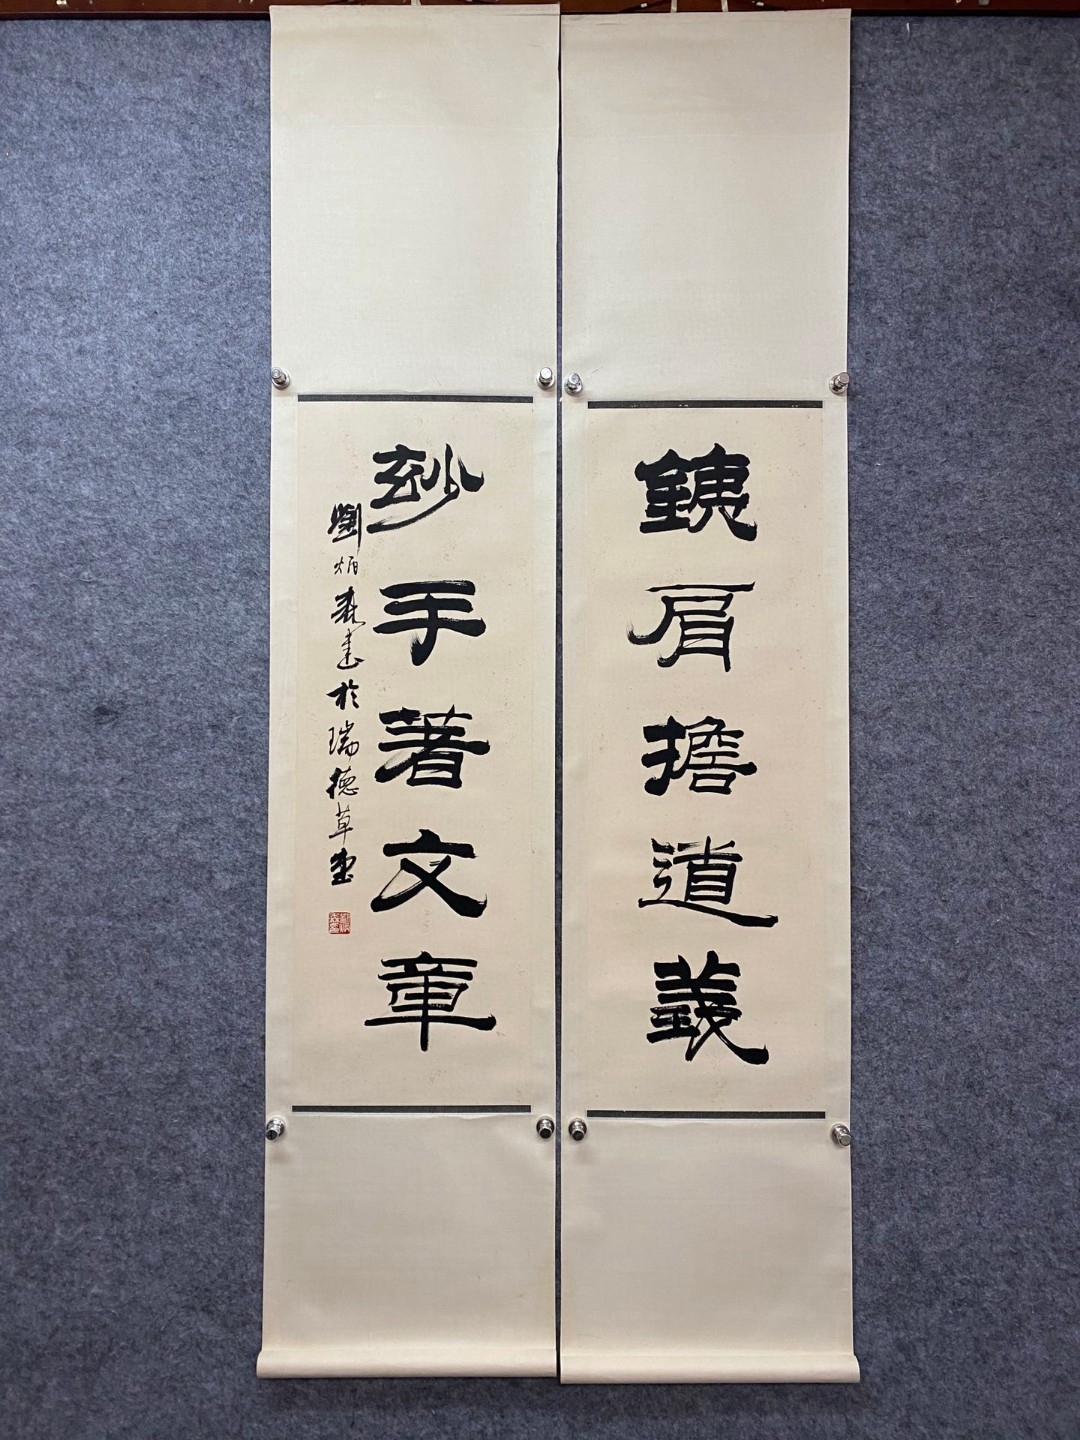 銕肩擔道義
玅手著文章
劉炳森書於瑞德草堂